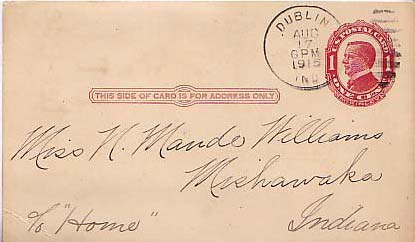 DUBLIN
AUG
17
6 PM
1915
IND
U.S. POSTAL CARD
1 1
ONE CENT
THIS SIDE OF CARD IS FOR ADDRESS ONLY
Miss N. Maude Williams
Mishawaka
c/o "Home" Indiana